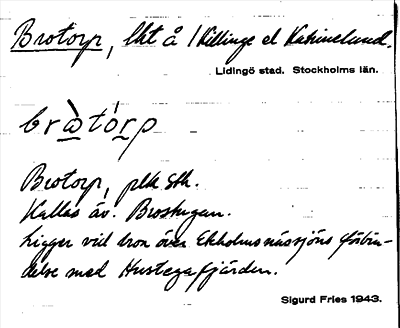 Brotorp, lht å Killinge el Katrinelund.
Lidingö stad. Stockholms län.
bròtórp
Brotorp, plk Sth.
Kallas äv. Brostugan.
Ligger vid bron över Ekholmsnässjöns förbin-
delse med Hustegafjärden.
Sigurd Fries 1943.